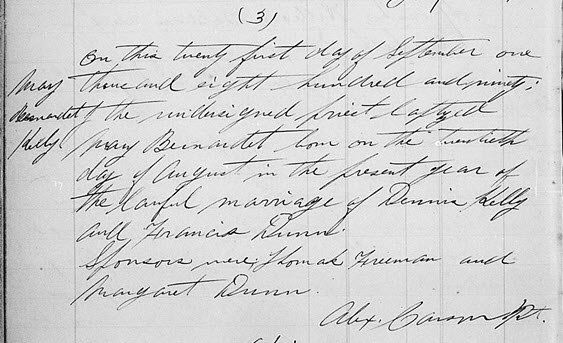 (3)
On this twenty first day of September one
May thousand eight hundred and ninety;
Bernardet I the undersigned priest baptyed
Kelly May Bernardet born on the twentieth
day of August in the present year of
the lawful marriage of Dennis Kelly
and Francis Dunn.
Sponsors were; Thomas Freeman and
Margaret Dunn.
Alex. Pt.